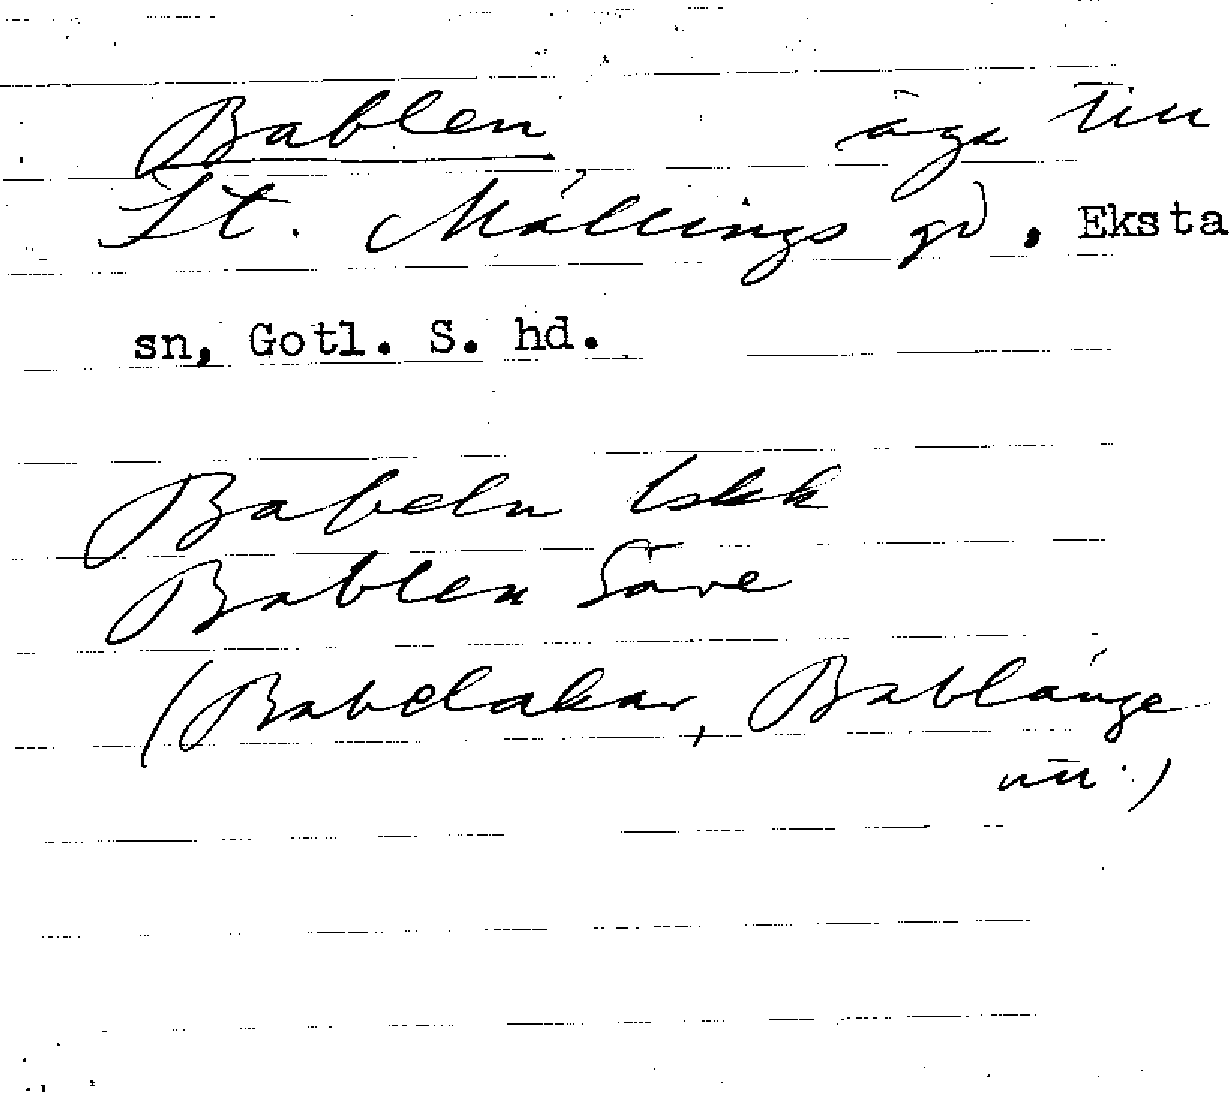 Bablen äga till
St. Mällings gd, Eksta
sn, Gotl. S. hd.
Babeln
Bablen Säve
(Babelakar, Bablänge
)